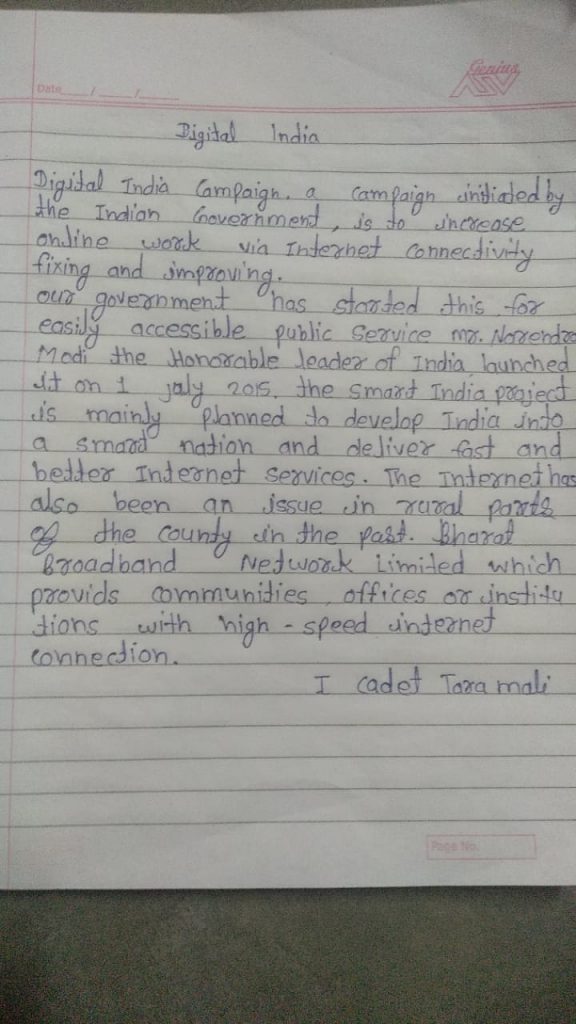 Genius
Date ___/___/___
Digital India
Digital India Campaign. a campaign initiated by
the Indian Government, is to increase
online work via Internet connectivity
fixing and improving.
our government has started this for
easily accessible public service mr. Narendra
Modi the Honorable leader of India launched
it on 1 jaly 2015. the smart India project
is mainly planned to develop India into
a smart nation and deliver fast and
better Internet services. The Internet has
also been an issue in rural parts
of the county in the past. Bharat
Broadband Network Limited which
provids communities, offices or institu
tions with high - speed internet
connection.
I cadet Tara mali
Page No.